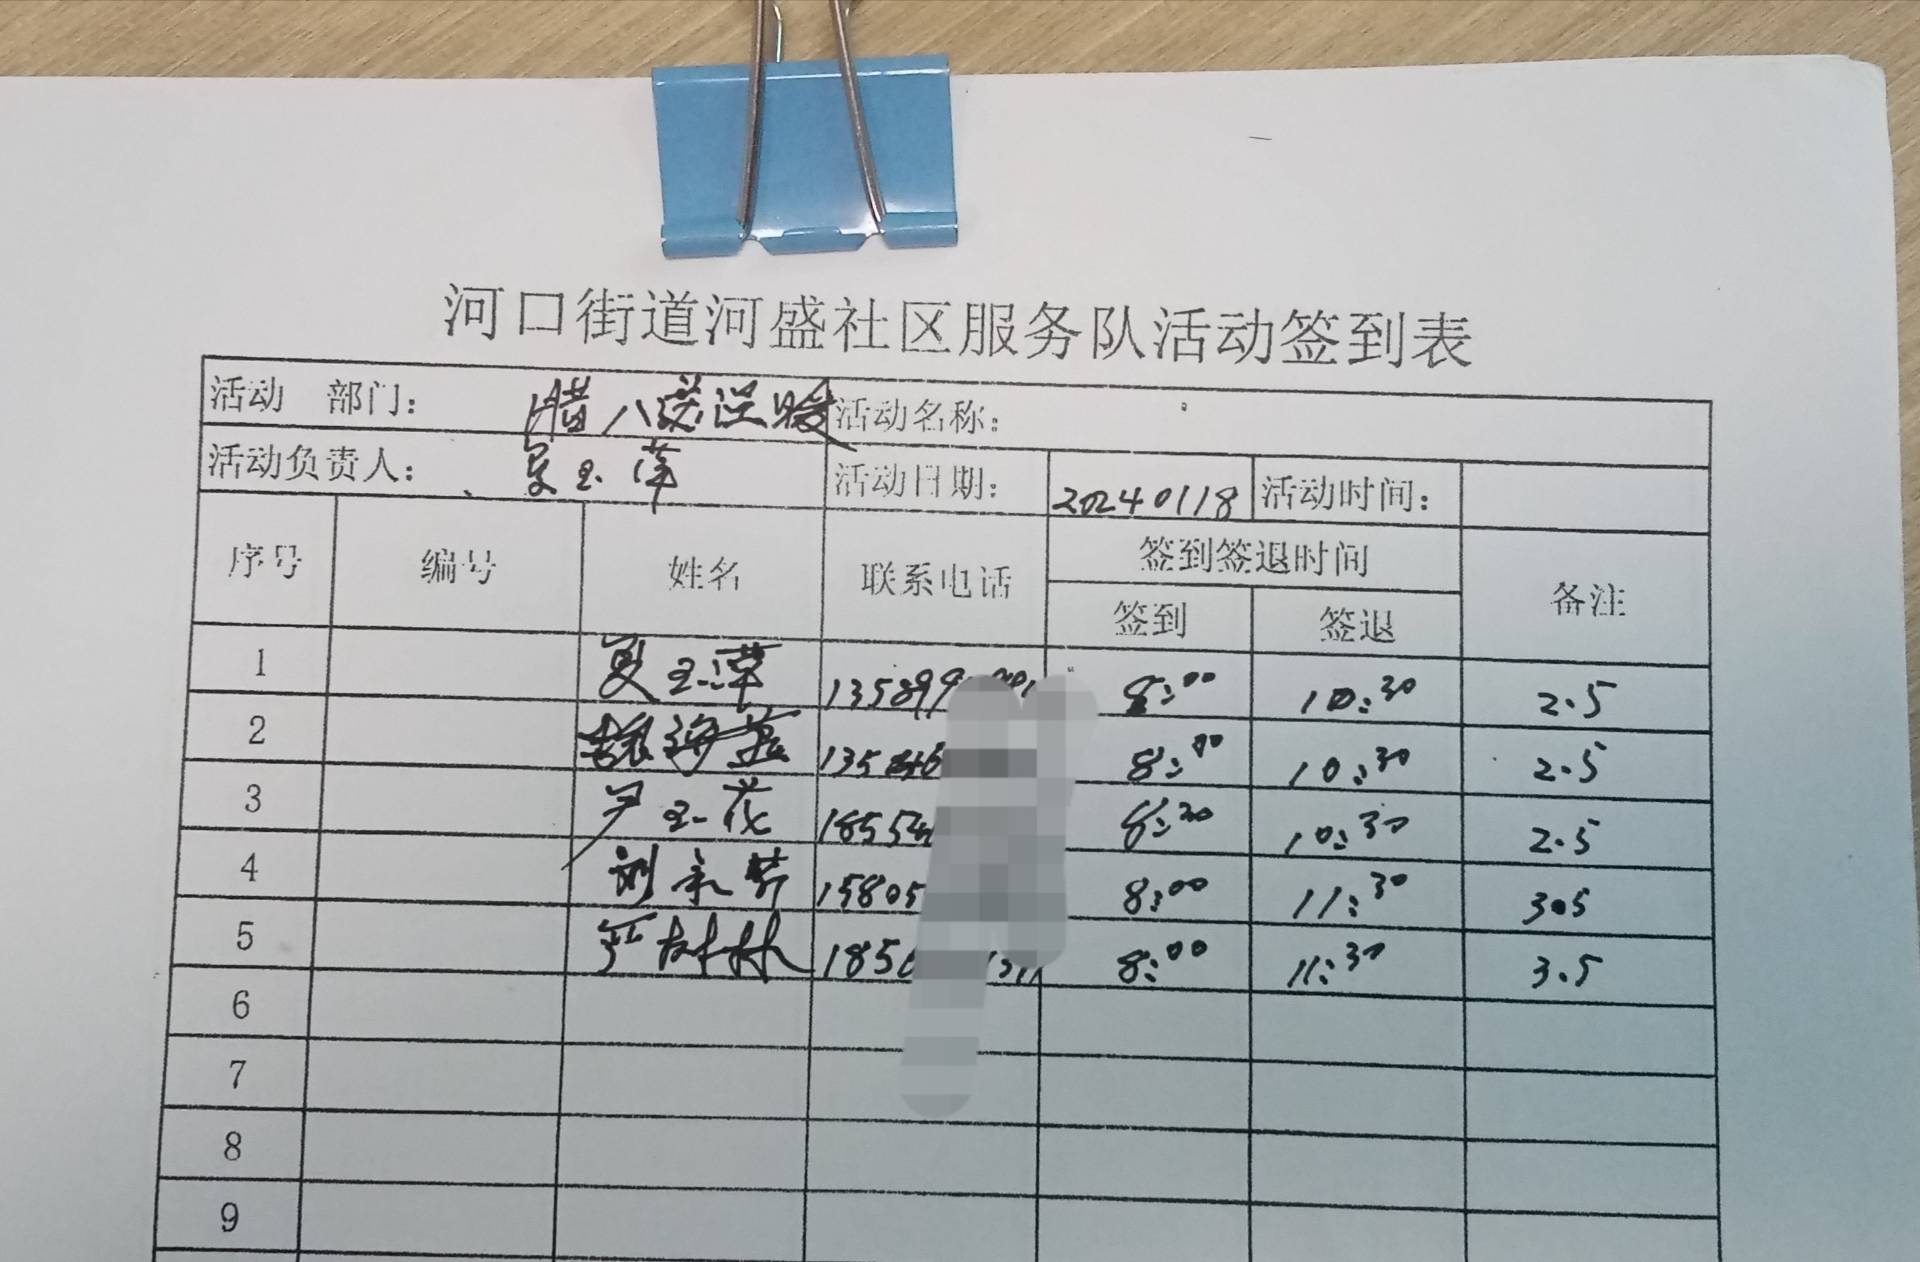 河口街道河盛社区服务队活动签到表
活动 部门： 腊八送温暖 活动名称：
活动负责人： 夏玉萍 活动日期： 20240118 活动时间：
序号 编号 姓名 联系电话 签到签退时间 备注
签到 签退
1 夏玉萍 135899 8:00 10:30 2.5
2 海燕 135 8:00 10:30 2.5
3 尹玉花 1855 10:30 2.5
4 刘 15805 8:00 11:30 3.5
5 严林林 185 8:00 11:30 3.5
6
7
8
9